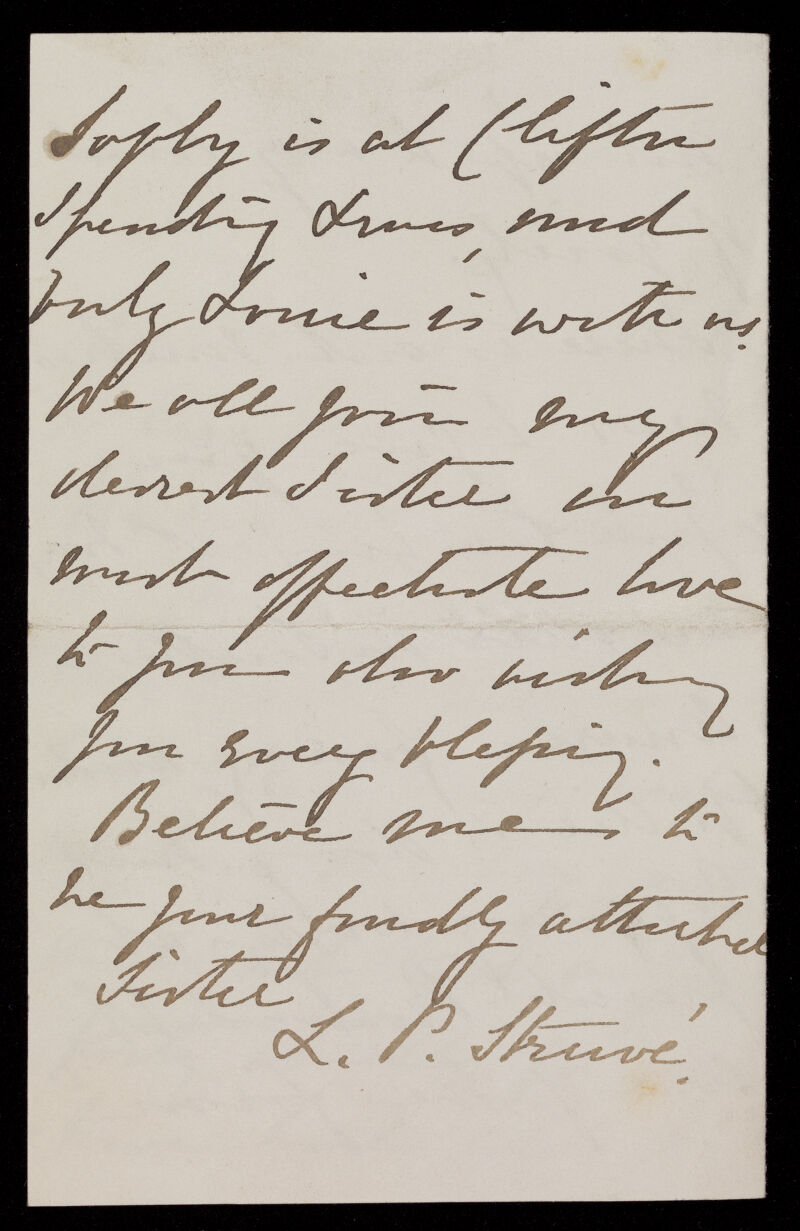 Sophy is at Clifton
spending Xmas, and
only Louie is with us.
We all join my
dearest Sister in
most affectnate love
to you also wishing
you every blessing.
Believe me to
be your fondly attached
Sister
L. P. Struvé.